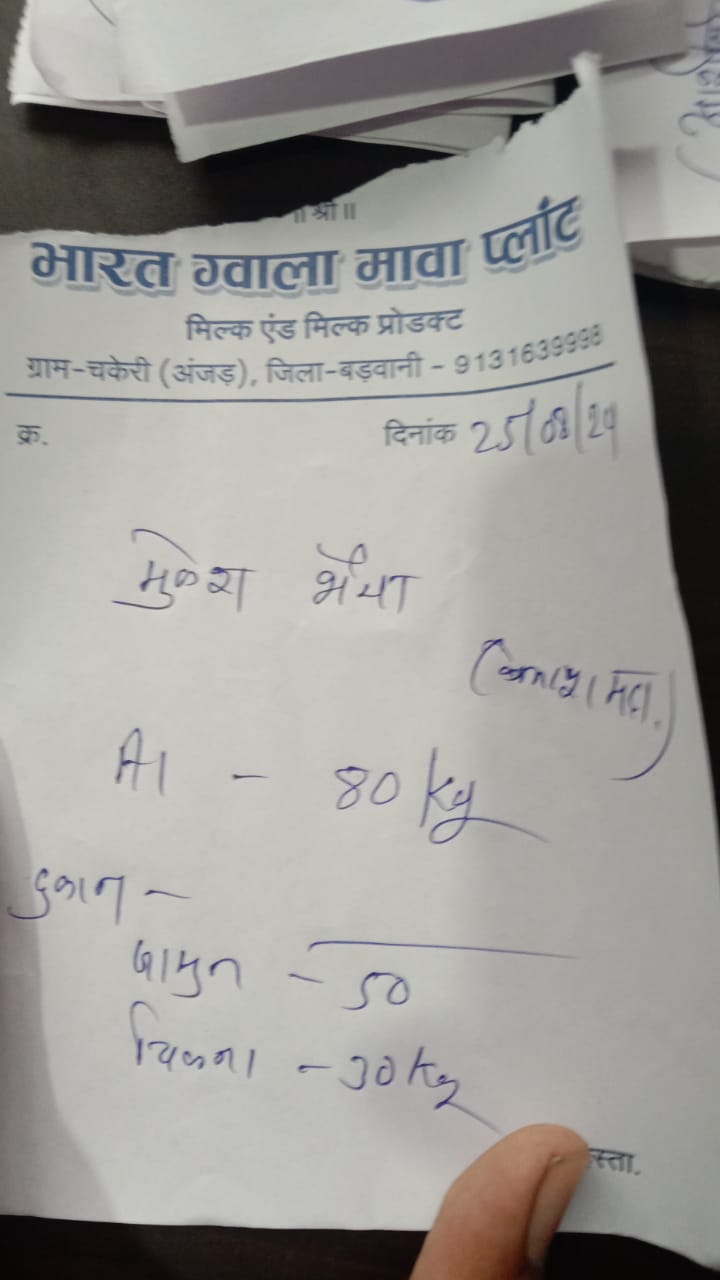 ॥ श्री ॥
भारत ग्वाला मावा प्लांट
मिल्क एंड मिल्क प्रोडक्ट
ग्राम-चकेरी (अंजड़), जिला-बड़वानी - 9131639998
क्र. दिनांक 25/08/24
मुकेश भैया
A1 - 80 kg
दुकान -
जामुन - 50
चिकना - 30 kg
स्ता.